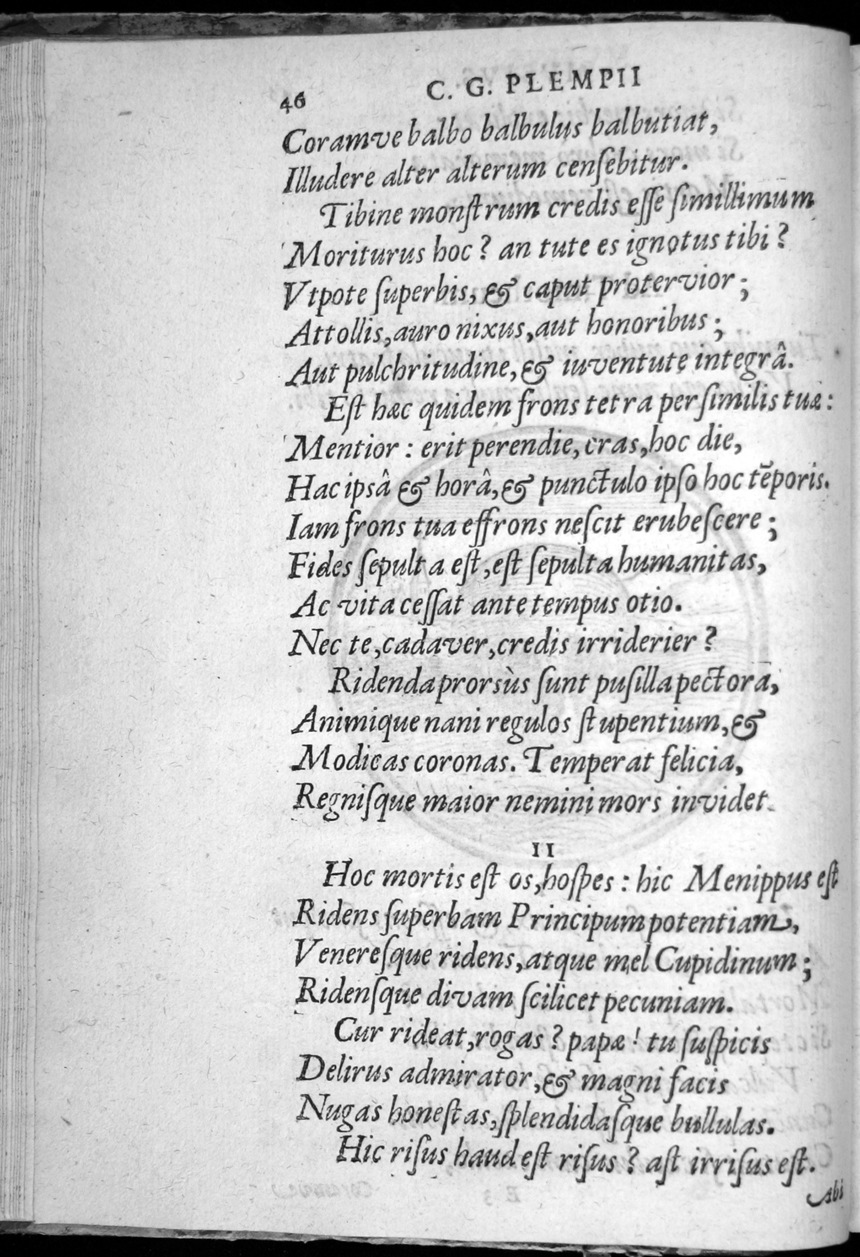 46 C. G. PLEMPII
Coramve balbo balbulus balbutiat,
Illudere alter alterum censebitur.
Tibine monstrum credis esse simillimum
Moriturus hoc? an tute es ignotus tibi?
Vtpote superbis, & caput protervior;
Attollis, auro nixus, aut honoribus;
Aut pulchritudine, & iuventute integrâ.
Est hæc quidem frons tetra persimilis tuæ:
Mentior: erit perendie, cras, hoc die,
Hac ipsâ & horâ, & punctulo ipso hoc tẽporis.
Iam frons tua effrons nescit erubescere;
Fides sepulta est, est sepulta humanitas,
Ac vita cessat ante tempus otio.
Nec te, cadaver, credis irriderier?
Ridenda prorsùs sunt pusilla pectora,
Animique nani regulos stupentium, &
Modicas coronas. Temperat felicia,
Regnisque maior nemini mors invidet.
II
Hoc mortis est os, hospes: hic Menippus est
Ridens superbam Principum potentiam,
Veneresque ridens, atque mel Cupidinum;
Ridensque divam scilicet pecuniam.
Cur rideat, rogas? papæ! tu suspicis
Delirus admirator, & magni facis
Nugas honestas, splendidasque bullulas.
Hic risus haud est risus? ast irrisus est.
Abi